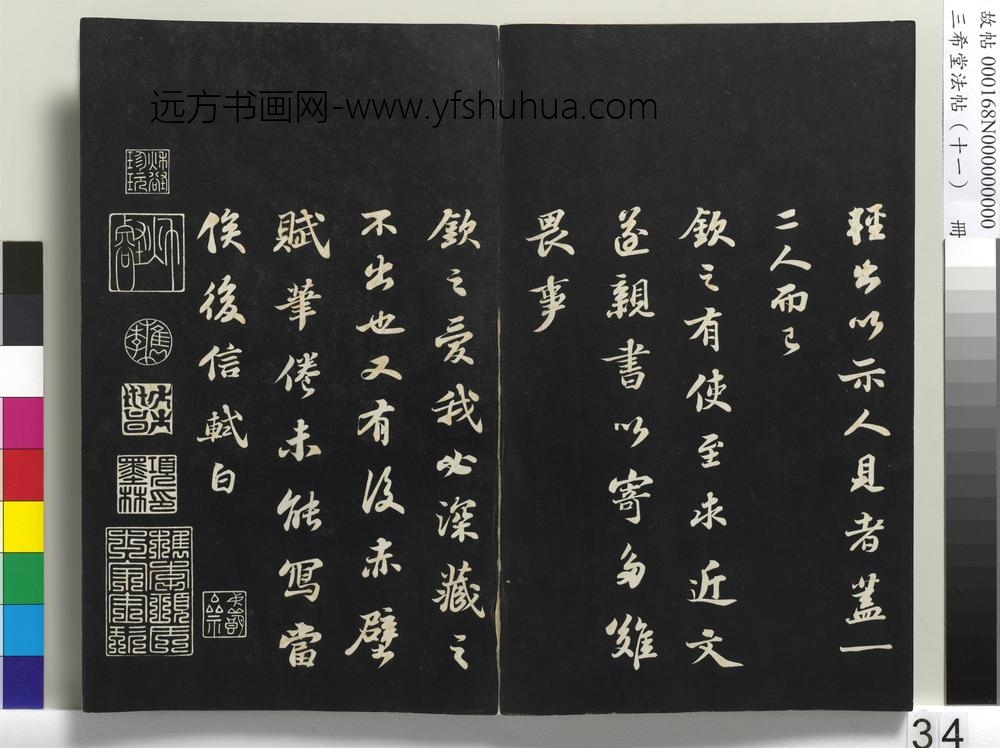 远方书画网-www.yfshuhua.com
輕出以示人見者蓋一
二人而已
欽之有使至求近文
遂親書以寄多難
畏事
欽之愛我必深藏之
不出也又有後赤壁
賦筆倦未能寫當
俟後信軾白
項墨林
故帖 000168N000000000
三希堂法帖（十一） 册
34